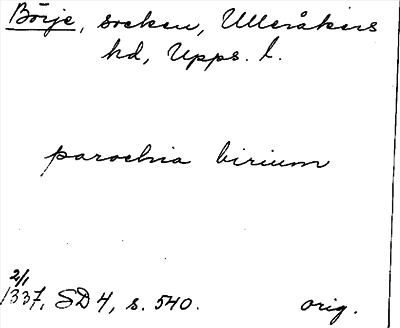 Börje, socken, Ulleråkers
hd, Upps. l.
parochia birium
2/1
1337, SD 4, s. 540. orig.